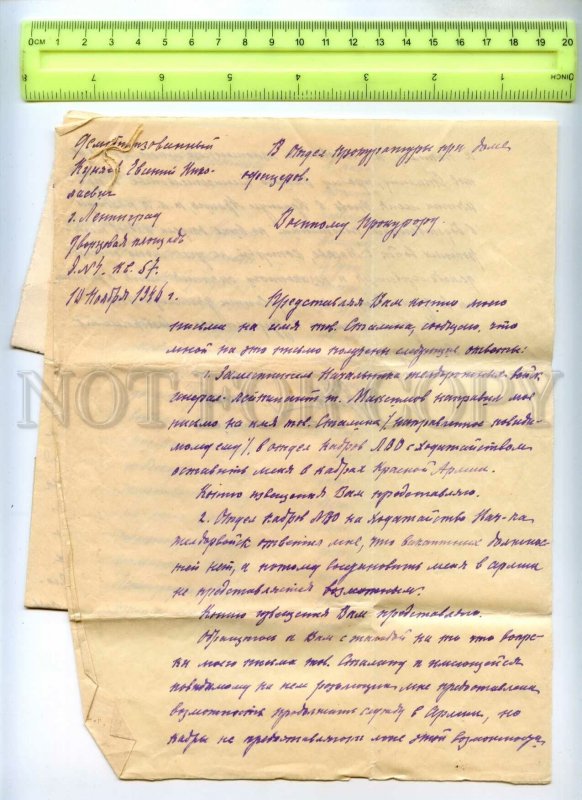 0CM 1 2 3 4 5 6 7 8 9 10 11 12 13 14 15 16 17 18 19 20
8 7 6 5 4 3 2 1 INCH 0
Демобилизованный
Евгений Нико-
лаевич
г. Ленинград
Дворцовая площадь
д. № 4. кв. 57.
10 Ноября 1946 г.
В Отдел Прокуратуры при доме
офицеров.
Военному Прокурору.
Представляя Вам копию моего
письма на имя тов. Сталина, сообщаю, что
мной на это письмо получены следующие ответы:
1. Заместитель Начальника войск
генерал-лейтенант т. Максимов направил мое
письмо на имя тов. Сталина /направленное повиди-
мому ему/, в отдел кадров ЛВО с ходатайством
оставить меня в кадрах Красной Армии.
Копию извещения Вам представляю.
2. Отдел кадров ЛВО на ходатайство Нач-ка
ответил мне, что вакантных должно-
стей нет, а потому восстановить меня в армии
не представляется возможным.
Копию извещения Вам представляю.
Обращаюсь к Вам с жалобой на то что вопре-
ки моего письма тов. Сталину и имеющейся
повидимому на нем резолюции мне предоставлена
возможность продолжать службу в Армии, но
кадры не предоставляют мне этой возможности
NOT FOR COPY